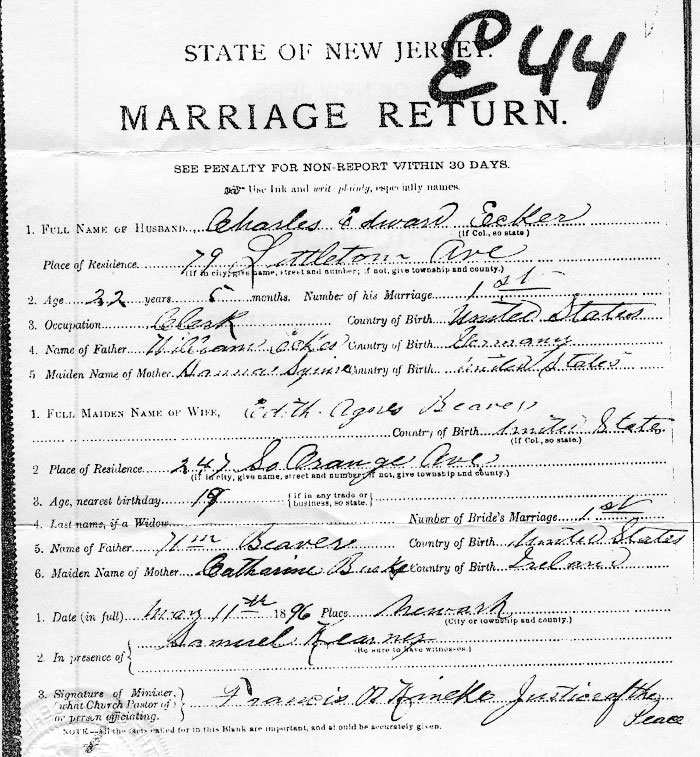 E 44
STATE OF NEW JERSEY.
MARRIAGE RETURN.
SEE PENALTY FOR NON-REPORT WITHIN 30 DAYS.
Use Ink and writ plainly, especially names.
1. FULL NAME OF HUSBAND, Charles Edward Ecker
(If Col., so state.)
Place of Residence. 79 Littleton Ave
(If in city, give name, street and number; if not, give township and county.)
2. Age 22 years 5 months. Number of his Marriage 1st
3. Occupation Clerk Country of Birth United States
4. Name of Father William Ecker Country of Birth Germany
5 Maiden Name of Mother Country of Birth United States
1. FULL MAIDEN NAME OF WIFE, Edith Agnes Beavers
Country of Birth United States
(If Col., so state.)
2 Place of Residence 247 So Orange Ave
(If in city, give name, street and number; if not, give township and county.)
3. Age, nearest birthday 19 {if in any trade or business, so state.}
4. Last name, if a Widow Number of Bride's Marriage 1st
5. Name of Father Wm Beavers Country of Birth United States
6. Maiden Name of Mother Catharine Burke Country of Birth Ireland
1. Date (in full) May 11th 1896 Place Newark
(City or township and county.)
2. In presence of { Samuel Kearney
(Be sure to have witnesses.)
3. Signature of Minister, what Church Pastor of, or person officiating. } Francis Justice of the Peace
NOTE—All the facts called for in this Blank are important, and should be accurately given.